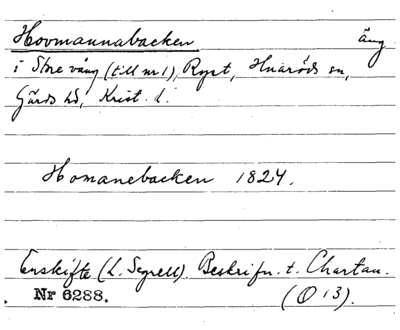 Hovmannabacken äng
i Store vång (till nr 1), Ryet, Huaröds sn,
Gärds hd, Krist. l.
Homanebacken 1824.
Enskifte (L. Segrell) Beskrifn. t. Chartan.
Nr 6288. (O 13).